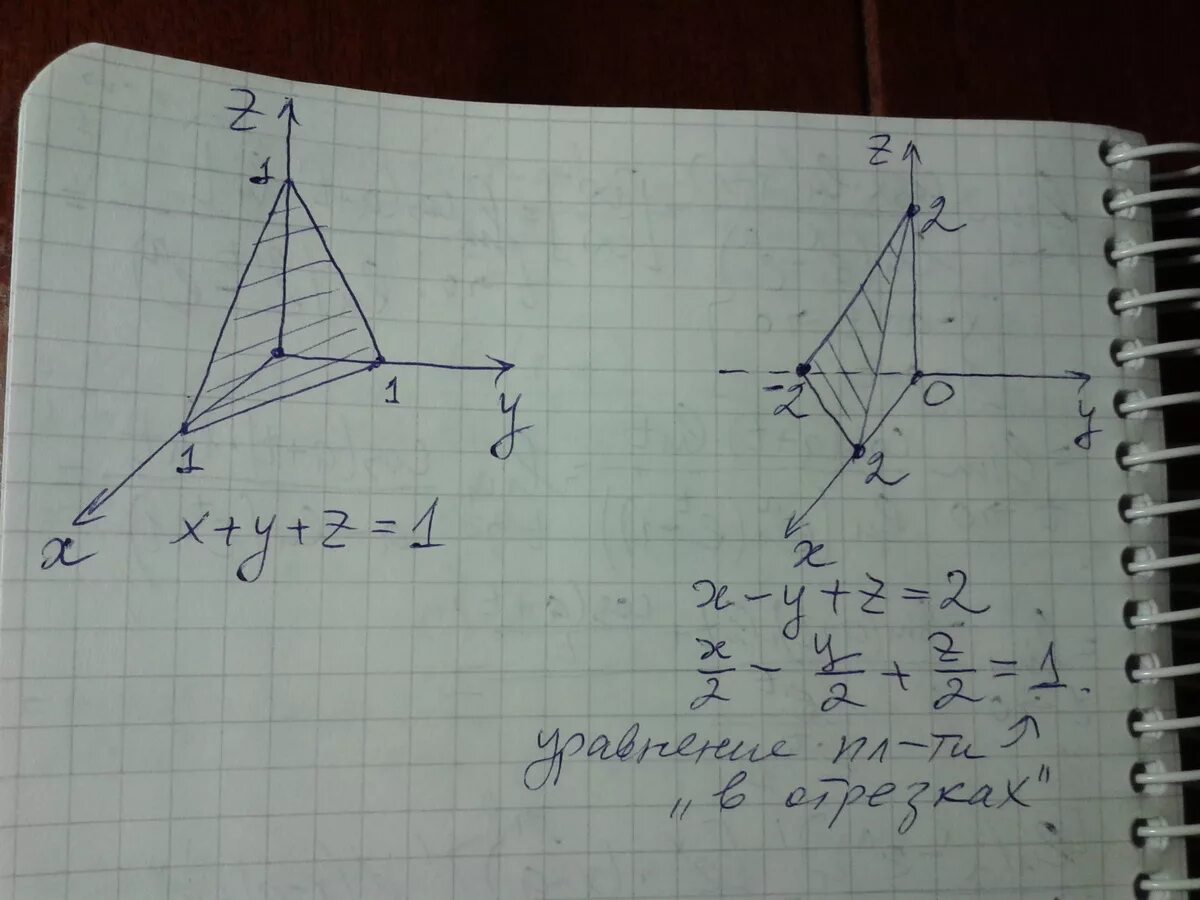 z
1
1
y
1
x
x+y+z=1
z
2
-2
0
y
2
x
x-y+z=2
x/2 - y/2 + z/2 = 1.
уравнение пл-ти ↑
„в отрезках"